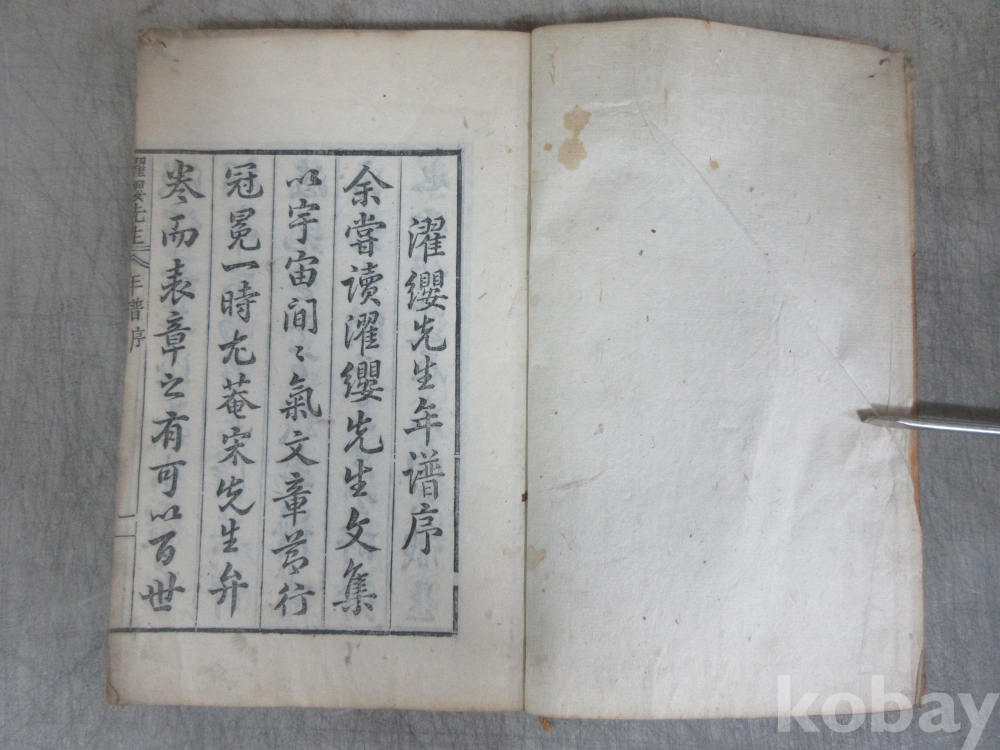 濯纓先生年譜序
余嘗讀濯纓先生文集
以宇宙間〻氣文章節行
冠冕一時尤菴宋先生弁
卷而表章之有可以百世
濯纓先生年譜序
一
kobay